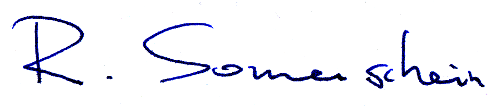 R. Sonnenschein